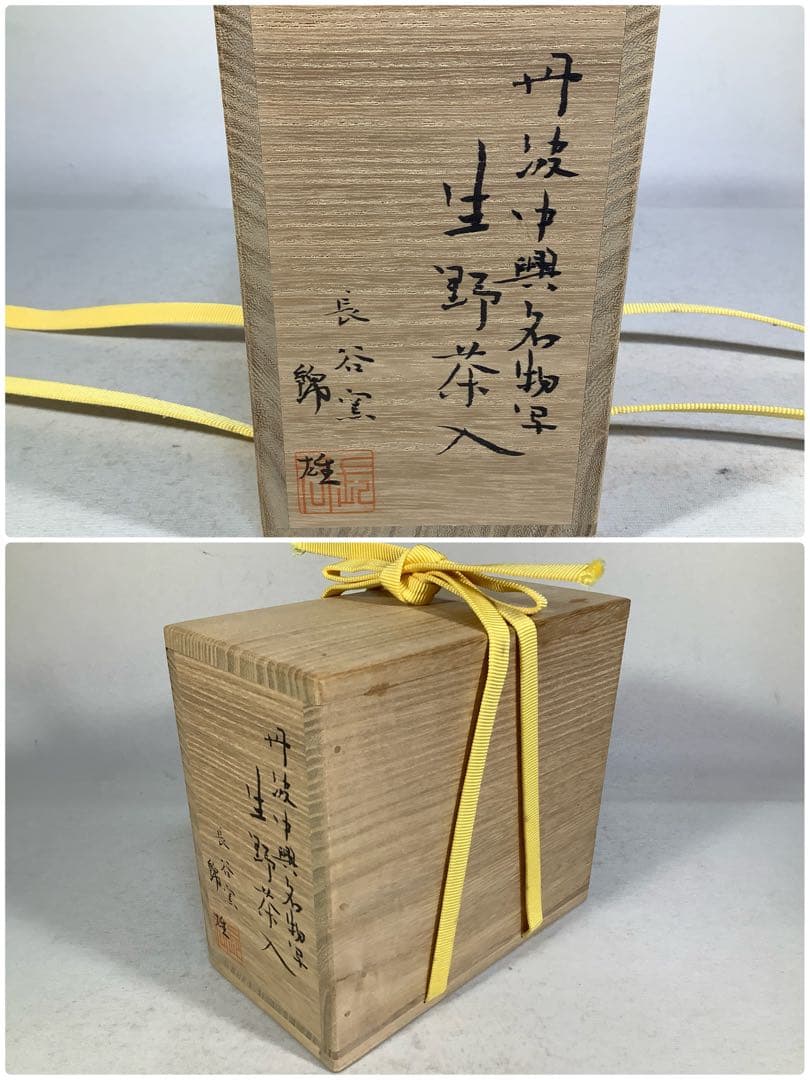 丹波中興名物写
生野茶入
長谷窯
錦雄
丹波中興名物写
生野茶入
長谷窯
錦雄